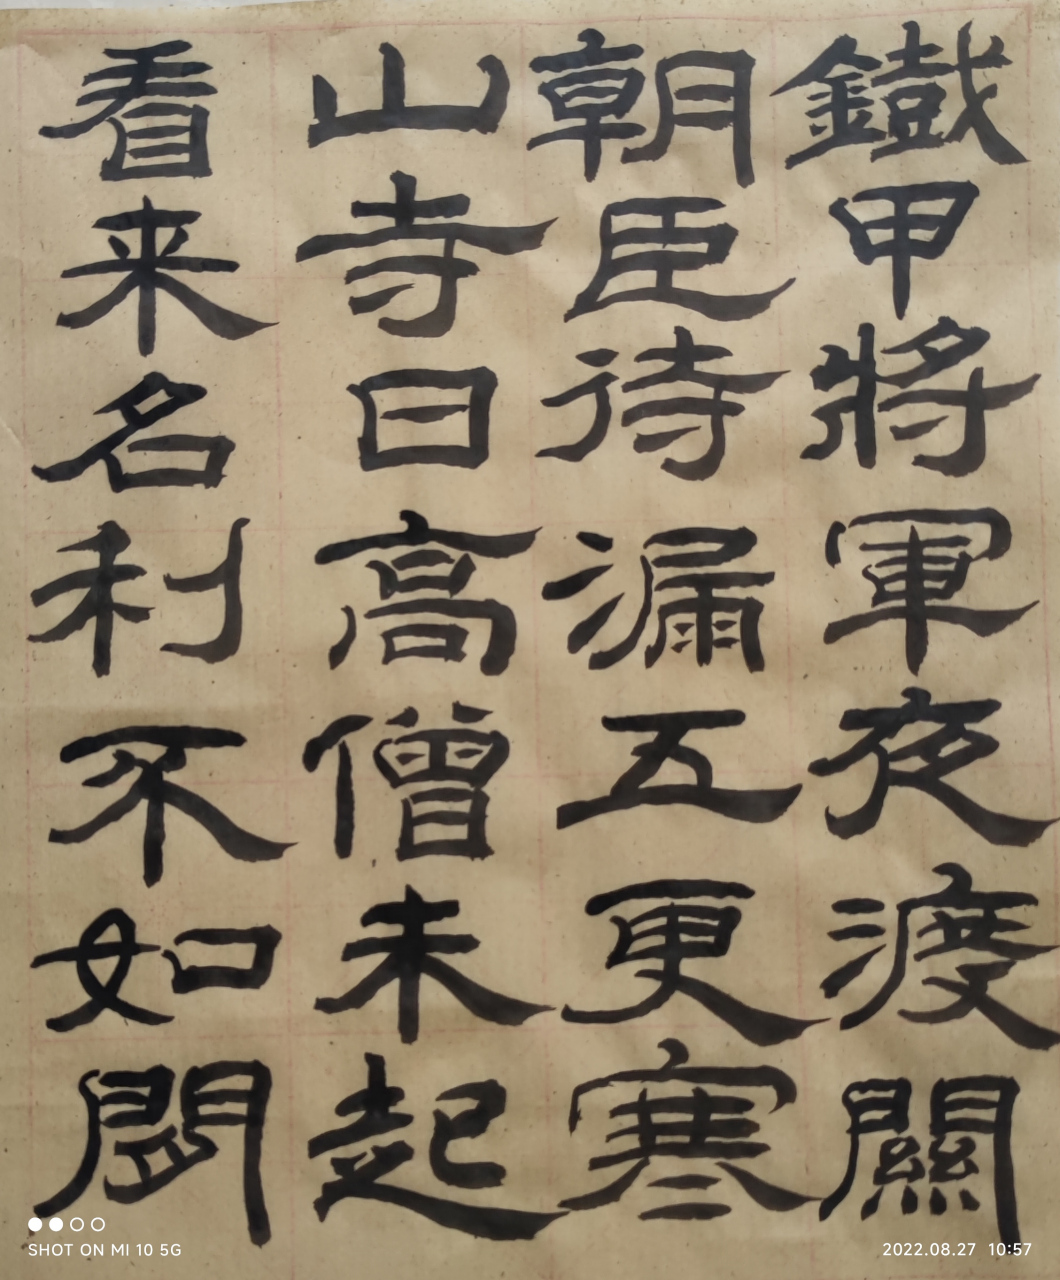 鐵甲將軍夜渡關
朝臣待漏五更寒
山寺日高僧未起
看来名利不如閒
SHOT ON MI 10 5G
2022.08.27 10:57